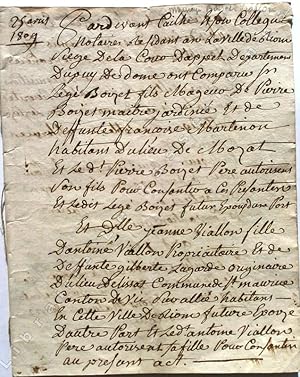 25 avril
1809
Pardevant Cailhe & son Collegue
Notaires Residant en La Ville de Riom
Siege de la Cour Dappel, Departement
Dupuy de Dome ont Comparus Sr
Legé Boizet fils Majeur de Pierre
Boizet maitre jardinié Et de
deffunte francoise Martenon
habitans du Lieu de Mozat
Et Le dt Pierre Boizet Pere autorisent
son fils Pour Consantir a Ces Presentes
Et Ledit Legé Boizet futur Epoux Dune Part
Et Dlle jeanne Vallon fille
Dantoine Vallon Propriétaire Et de
Deffunte gilberte Lagarde originaire
du Lieu de Lissat Commune de St maurice
Canton de Vic Pieralle habitans
En Cette Ville de Riom future Epouze
Dautre Part Et Led. antoine Vallon
Pere autorisent sa fille Pour Consantir
au present act.